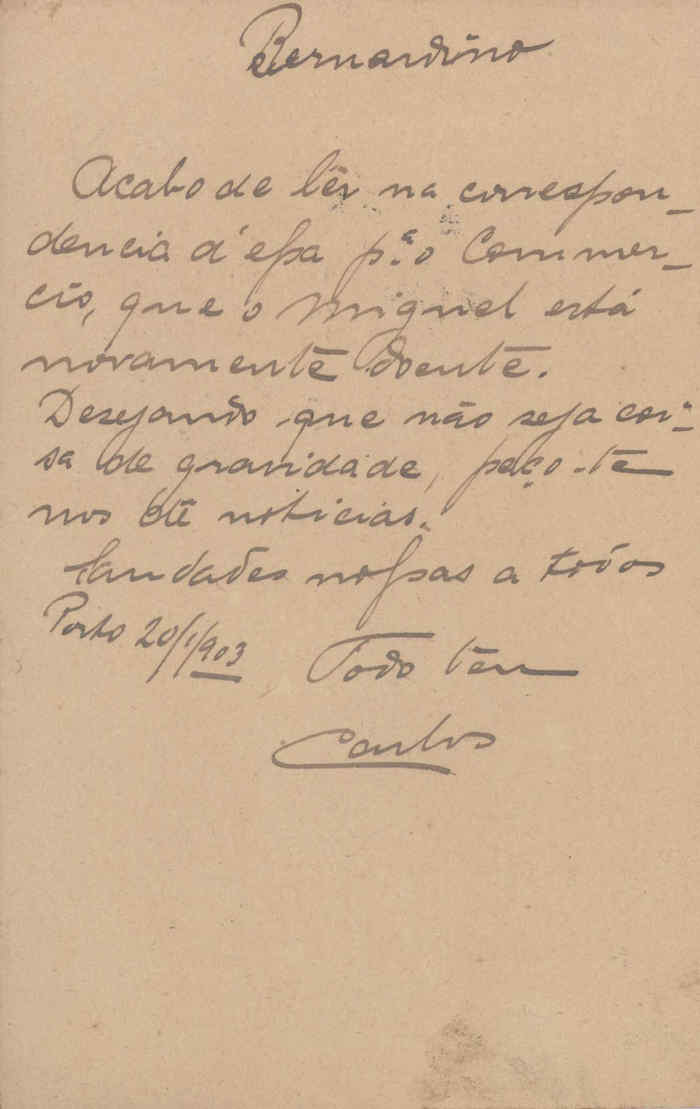 Bernardino
Acabo de lêr na correspon-
dencia d'essa p.ª o Commer-
cio, que o Miguel está
novamente doente.
Desejando que não seja coi-
sa de gravidade, peço-te
nos dê noticias.
Saudades nossas a todos
Porto 20/1/903
Todo teu
Carlos